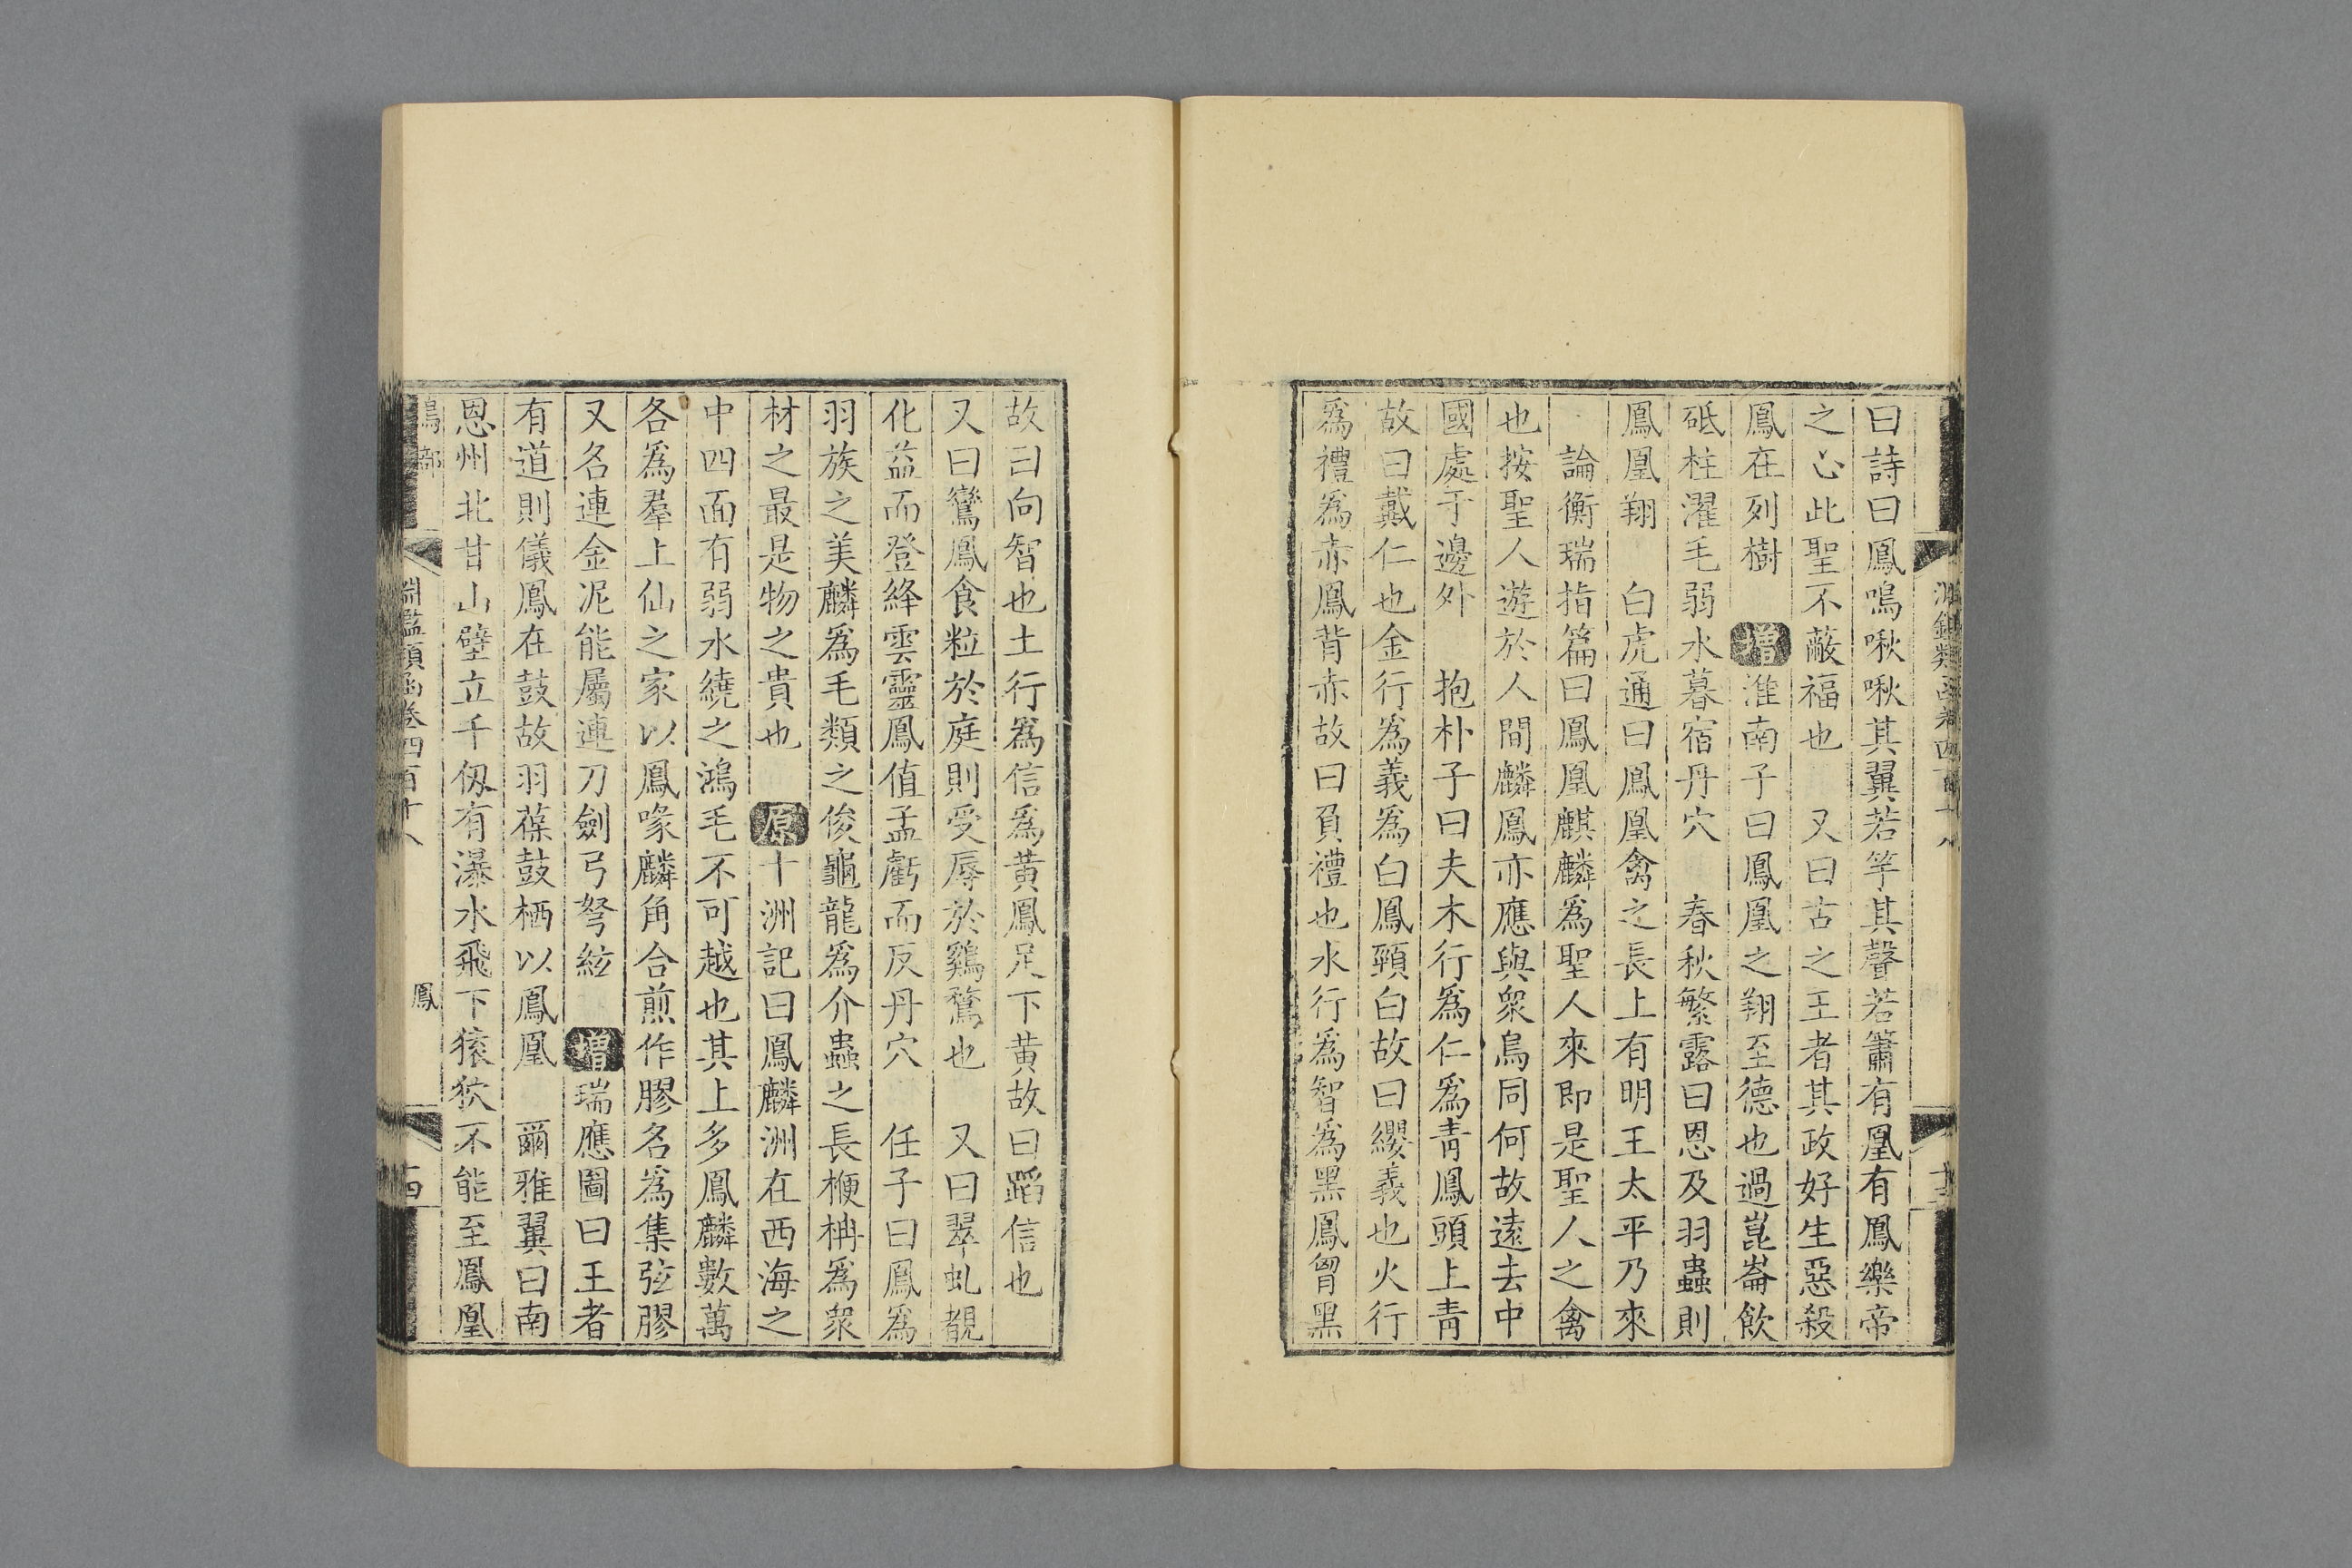 曰詩曰鳳鳴啾啾其翼若竿其聲若簫有凰有鳳樂帝
之心此聖不蔽福也　又曰古之王者其政好生惡殺
鳳在列樹　增淮南子曰鳳凰之翔至德也過崑崙飲
砥柱濯毛弱水暮宿丹穴　春秋繁露曰恩及羽蟲則
鳳凰翔　白虎通曰鳳凰禽之長上有明王太平乃來
論衡瑞指篇曰鳳凰麒麟爲聖人來即是聖人之禽
也按聖人遊於人間麟鳳亦應與衆鳥同何故遠去中
國處于邊外　抱朴子曰夫木行爲仁爲青鳳頭上青
故曰戴仁也金行爲義爲白鳳頸白故曰纓義也火行
爲禮爲赤鳳背赤故曰負禮也水行爲智爲黑鳳胷黑
故曰向智也土行爲信爲黃鳳足下黃故曰蹈信也
又曰鸞鳳食粒於庭則受辱於鷄鶩也　又曰翠虬覩
化益而登絳雲靈鳳值孟虧而反丹穴　任子曰鳳爲
羽族之美麟爲毛類之俊龜龍爲介蟲之長楩枏爲衆
材之最是物之貴也　原十洲記曰鳳麟洲在西海之
中四面有弱水繞之鴻毛不可越也其上多鳳麟數萬
各爲羣上仙之家以鳳喙麟角合煎作膠名爲集弦膠
又名連金泥能屬連刀劍弓弩絃　增瑞應圖曰王者
有道則儀鳳在鼓故羽葆鼓栖以鳳凰　爾雅翼曰南
恩州北甘山壁立千仭有瀑水飛下猿狖不能至鳳凰
鳥部
淵鑑類函卷四百十八
鳳